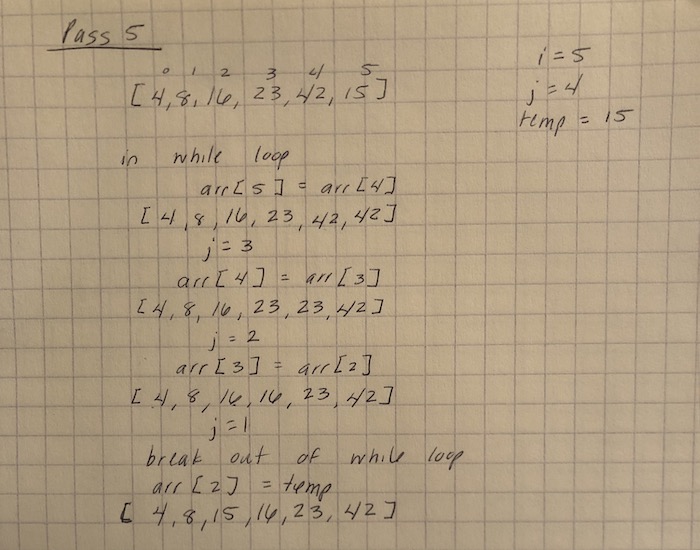 Pass 5
0 1 2 3 4 5
[4,8,16, 23,42,15]
i = 5
j = 4
temp = 15
in while loop
arr[5] = arr[4]
[4,8,16,23,42,42]
j = 3
arr[4] = arr[3]
[4,8,16,23,23,42]
j = 2
arr[3] = arr[2]
[4,8,16,16,23,42]
j=1
break out of while loop
arr[2] = temp
[4,8,15,16,23,42]